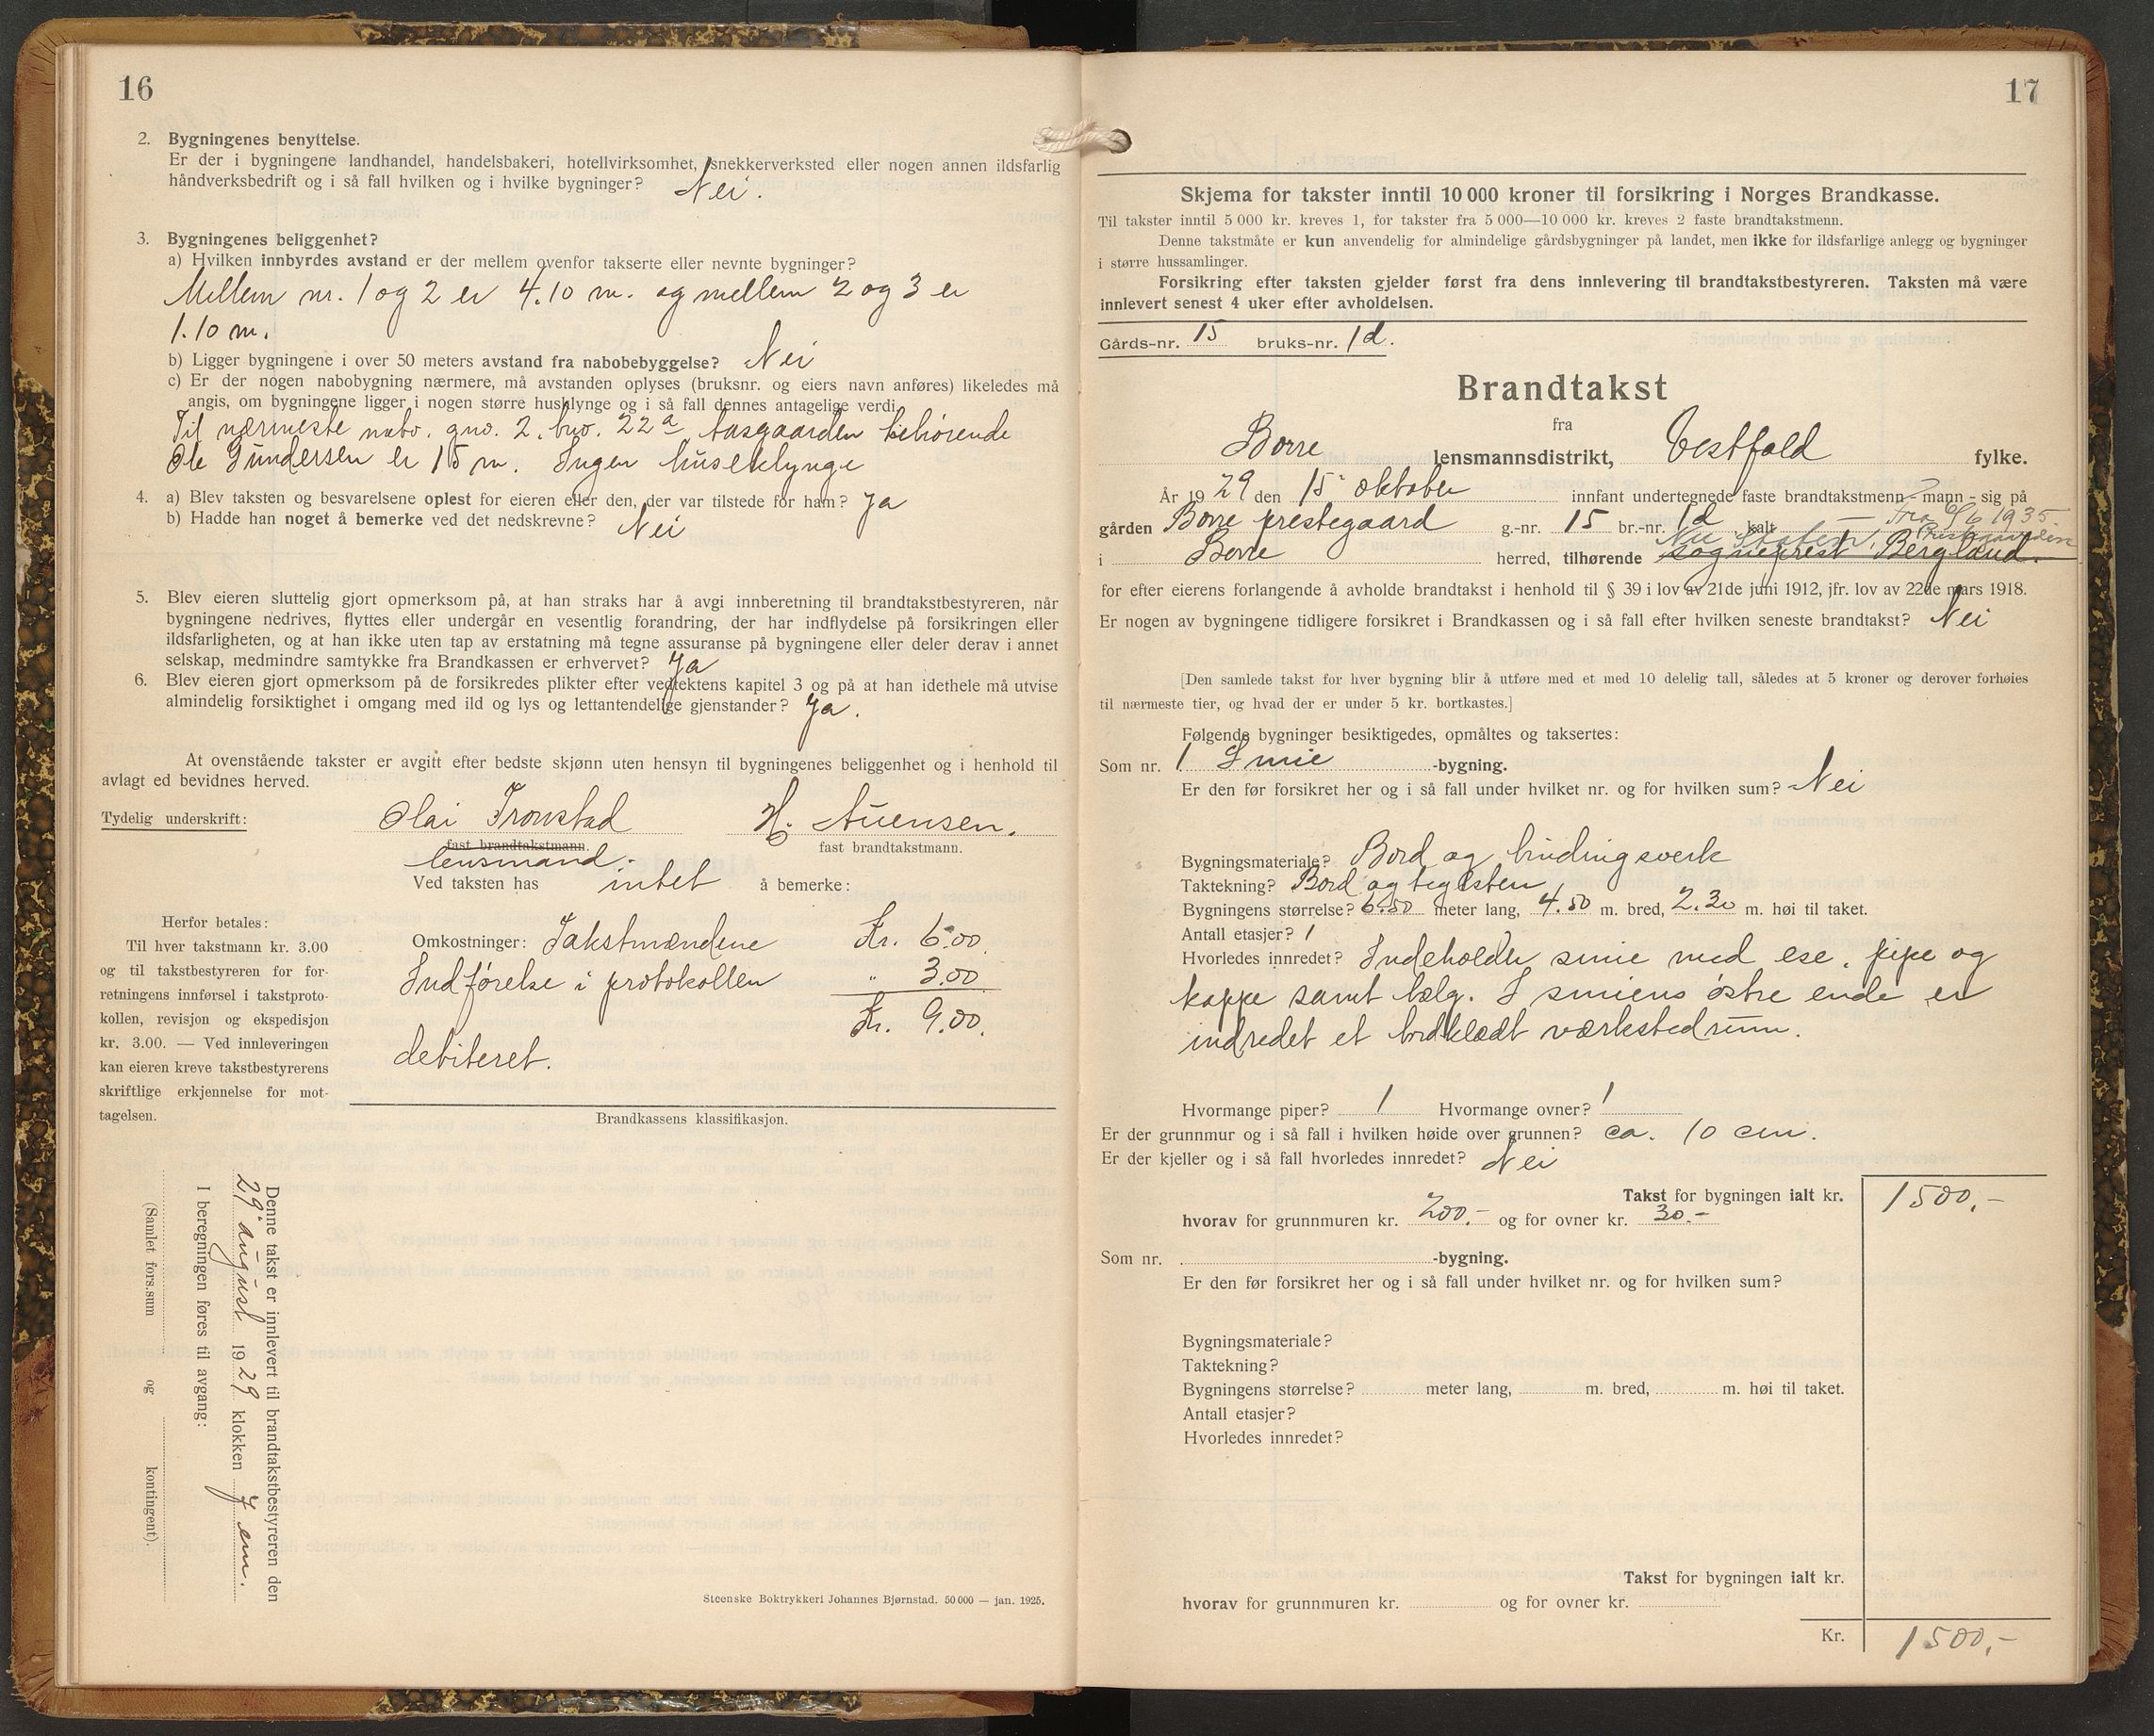 16
2. Bygningenes benyttelse.
Er der i bygningene landhandel, handelsbakeri, hotellvirksomhet, snekkerverksted eller nogen annen ildsfarlig
håndverksbedrift og i så fall hvilken og i hvilke bygninger? Nei.
3. Bygningenes beliggenhet?
a) Hvilken innbyrdes avstand er der mellem ovenfor takserte eller nevnte bygninger?
Mellem nr. 1 og 2 er 4.10 m. og mellem 2 og 3 er
1.10 m.
b) Ligger bygningene i over 50 meters avstand fra nabobebyggelse? Nei
c) Er der nogen nabobygning nærmere, må avstanden oplyses (bruksnr. og eiers navn anføres) likeledes må
angis, om bygningene ligger i nogen større husklynge og i så fall dennes antagelige verdi.
Til nærmeste nabo, gno. 2, bno. 22a Aasgaarden tilhørende
Ole Gundersen er 15 m. Ingen huseklynge
4. a) Blev taksten og besvarelsene oplest for eieren eller den, der var tilstede for ham? Ja
b) Hadde han noget å bemerke ved det nedskrevne? Nei
5. Blev eieren sluttelig gjort opmerksom på, at han straks har å avgi innberetning til brandtakstbestyreren, når
bygningene nedrives, flyttes eller undergår en vesentlig forandring, der har indflydelse på forsikringen eller
ildsfarligheten, og at han ikke uten tap av erstatning må tegne assuranse på bygningene eller deler derav i annet
selskap, medmindre samtykke fra Brandkassen er erhvervet? Ja
6. Blev eieren gjort opmerksom på de forsikredes plikter efter vedtektens kapitel 3 og på at han idethele må utvise
almindelig forsiktighet i omgang med ild og lys og lettantendelige gjenstander? Ja.
At ovenstående takster er avgitt efter bedste skjønn uten hensyn til bygningenes beliggenhet og i henhold til
avlagt ed bevidnes herved.
Tydelig underskrift: Olai Tronstad H. Auensen.
fast brandtakstmann. fast brandtakstmann.
lensmand.
Ved taksten has intet å bemerke:
Herfor betales:
Til hver takstmann kr. 3.00
og til takstbestyreren for for-
retningens innførsel i takstproto-
kollen, revisjon og ekspedisjon
kr. 3.00. — Ved innleveringen
kan eieren kreve takstbestyrerens
skriftlige erkjennelse for mot-
tagelsen.
Omkostninger: Takstmændene Kr. 6.00.
Indførelse i protokollen „ 3.00
Kr. 9.00.
debiteret.
Brandkassens klassifikasjon.
Denne takst er innlevert til brandtakstbestyreren den
29' august 1929 klokken 7 em.
I beregningen føres til avgang:
(Samlet fors.sum og kontingent).
Steenske Boktrykkeri Johannes Bjørnstad. 50 000 — jan. 1925.
17
Skjema for takster inntil 10 000 kroner til forsikring i Norges Brandkasse.
Til takster inntil 5 000 kr. kreves 1, for takster fra 5 000—10 000 kr. kreves 2 faste brandtakstmenn.
Denne takstmåte er kun anvendelig for almindelige gårdsbygninger på landet, men ikke for ildsfarlige anlegg og bygninger
i større hussamlinger.
Forsikring efter taksten gjelder først fra dens innlevering til brandtakstbestyreren. Taksten må være
innlevert senest 4 uker efter avholdelsen.
Gårds-nr. 15 bruks-nr. 1d.
Brandtakst
fra
Borre lensmannsdistrikt, Vestfold fylke.
År 1929 den 15' oktober innfant undertegnede faste brandtakstmenn - mann - sig på
gården Borre prestegaard g.-nr. 15 br.-nr. 1d kalt — Fra 9/6 1935
Nu Staten, Prestegaarden
i Borre herred, tilhørende sogneprest Bergland.
for efter eierens forlangende å avholde brandtakst i henhold til § 39 i lov av 21de juni 1912, jfr. lov av 22de mars 1918.
Er nogen av bygningene tidligere forsikret i Brandkassen og i så fall efter hvilken seneste brandtakst? Nei
[Den samlede takst for hver bygning blir å utføre med et med 10 delelig tall, således at 5 kroner og derover forhøies
til nærmeste tier, og hvad der er under 5 kr. bortkastes.]
Følgende bygninger besiktigedes, opmåltes og taksertes:
Som nr. 1 Smie -bygning.
Er den før forsikret her og i så fall under hvilket nr. og for hvilken sum? Nei
Bygningsmateriale? Bord og bindingsverk
Taktekning? Bord og teglsten
Bygningens størrelse? 6.50 meter lang, 4.50 m. bred, 2.30 m. høi til taket.
Antall etasjer? 1
Hvorledes innredet? Indeholder smie med ese, pipe og
kappe samt bælg. I smiens østre ende er
indredet et bordklædt værkstedrum.
Hvormange piper? 1 Hvormange ovner? 1
Er der grunnmur og i så fall i hvilken høide over grunnen? ca. 10 cm.
Er der kjeller og i så fall hvorledes innredet? Nei
Takst for bygningen ialt kr. 1500,-
hvorav for grunnmuren kr. 200.- og for ovner kr. 30.-
Som nr. -bygning.
Er den før forsikret her og i så fall under hvilket nr. og for hvilken sum?
Bygningsmateriale?
Taktekning?
Bygningens størrelse? meter lang, m. bred, m. høi til taket.
Antall etasjer?
Hvorledes innredet?
Takst for bygningen ialt kr.
hvorav for grunnmuren kr. og for ovner kr.
Kr. 1500,-